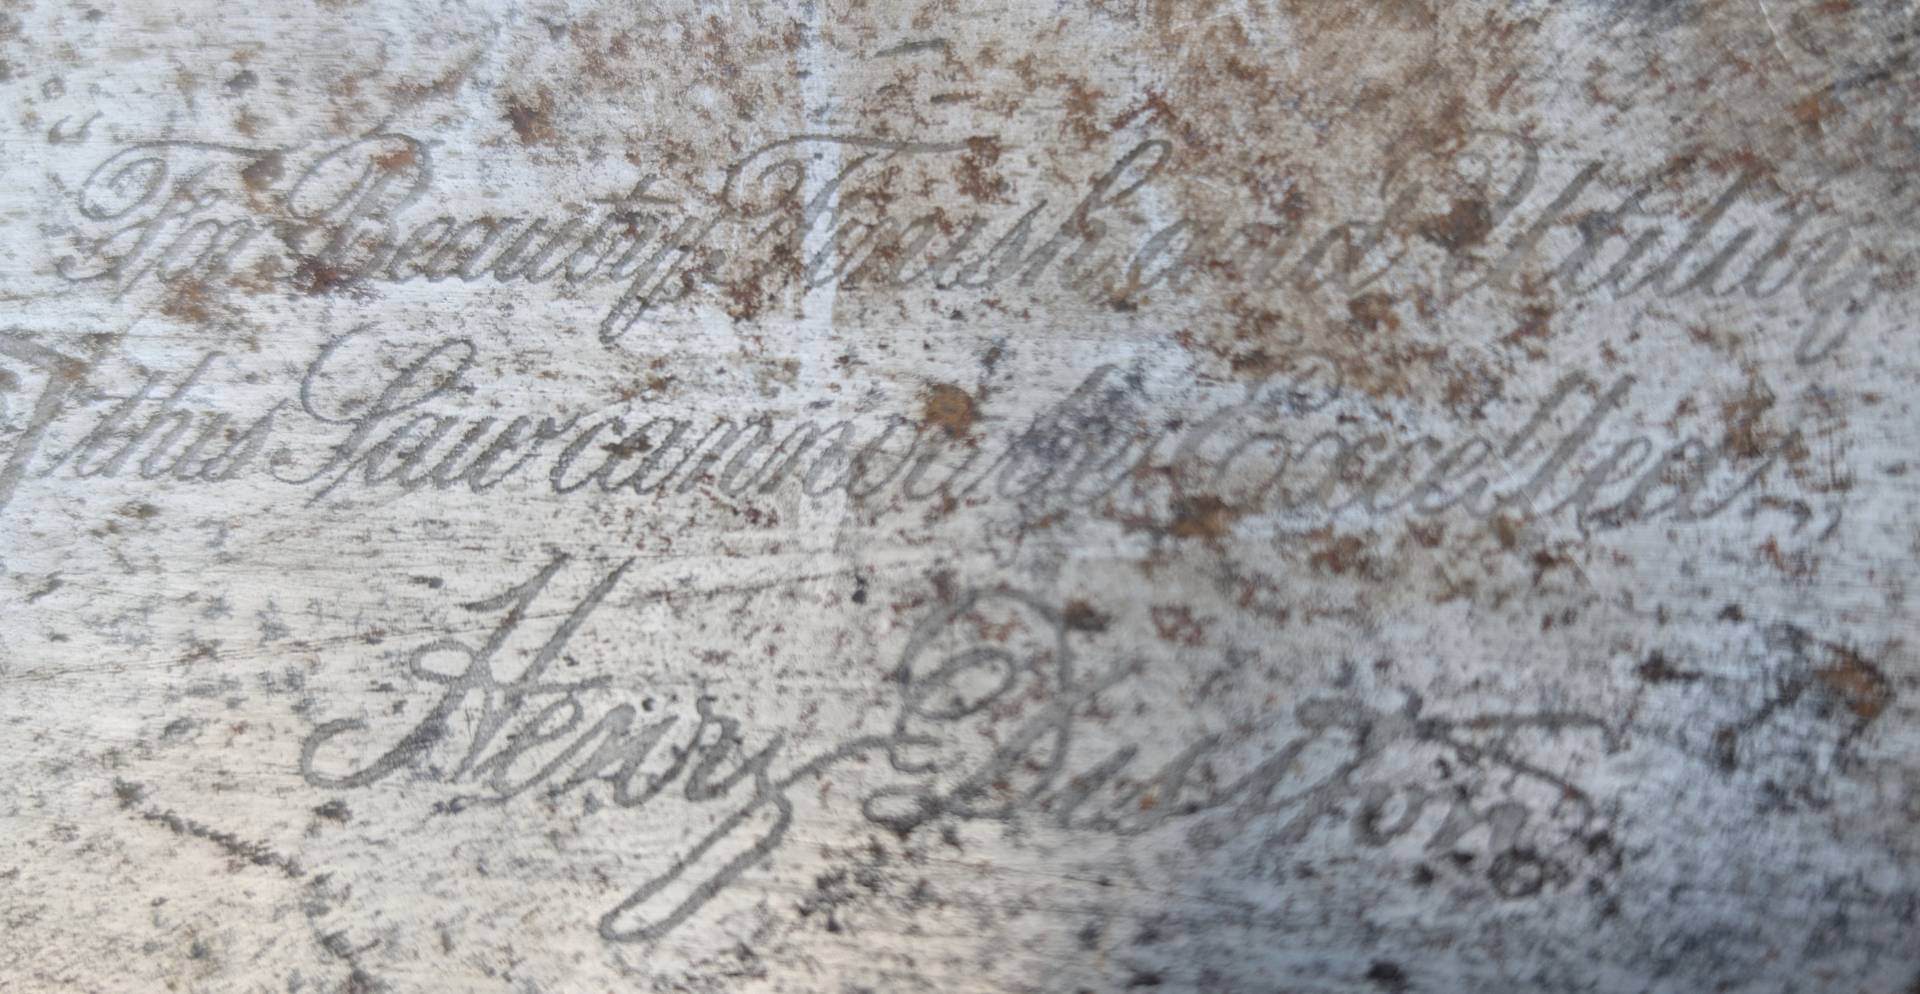 "For Beauty Finish and Utility
this Saw cannot be Excelled"
Henry Disston